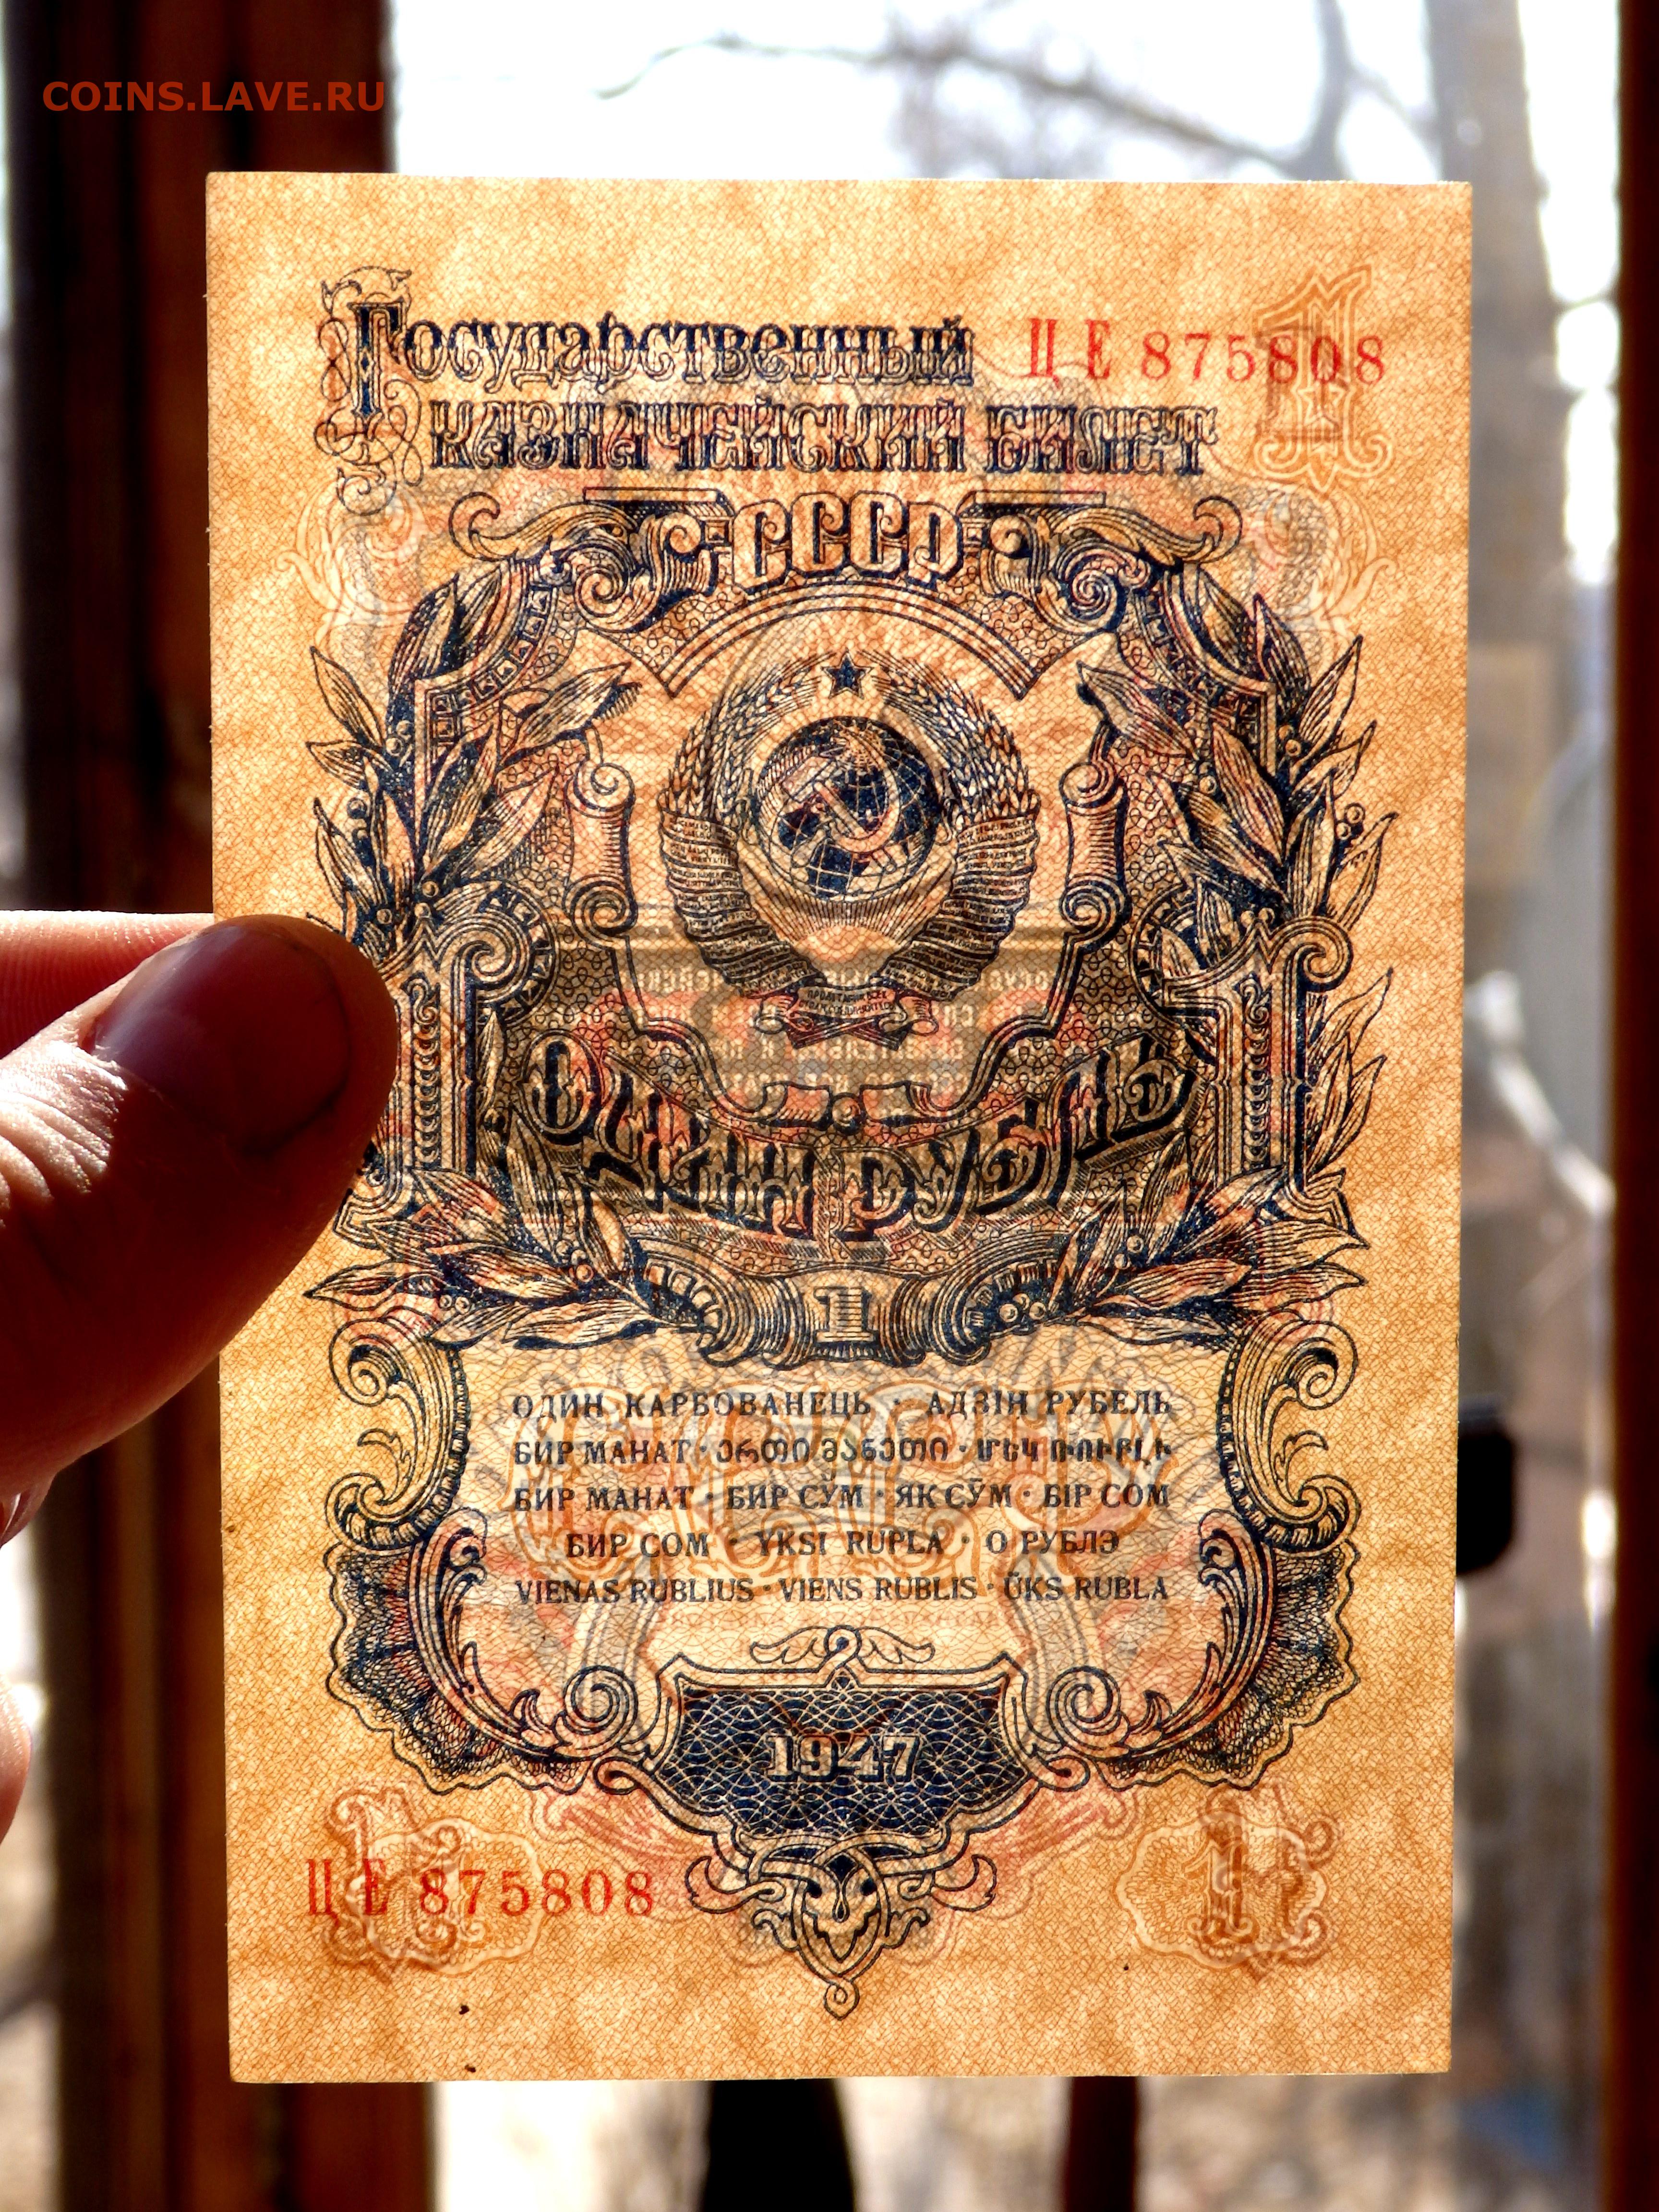 COINS.LAVE.RU
Государственный ЦЕ 875808
казначейский билет
СССР
1
ОДИН РУБЛЬ
1
ОДИН КАРБОВАНЕЦЬ · АДЗІН РУБЕЛЬ
БИР МАНАТ · ერთი მანეთი · ՄԵԿ ՌՈՒԲԼԻ
БИР МАНАТ · БИР СЎМ · ЯК СӮМ · БІР СОМ
БИР СОМ · YKSI RUPLA · О РУБЛЭ
VIENAS RUBLIUS · VIENS RUBLIS · ÜKS RUBLA
1947
ЦЕ 875808
1